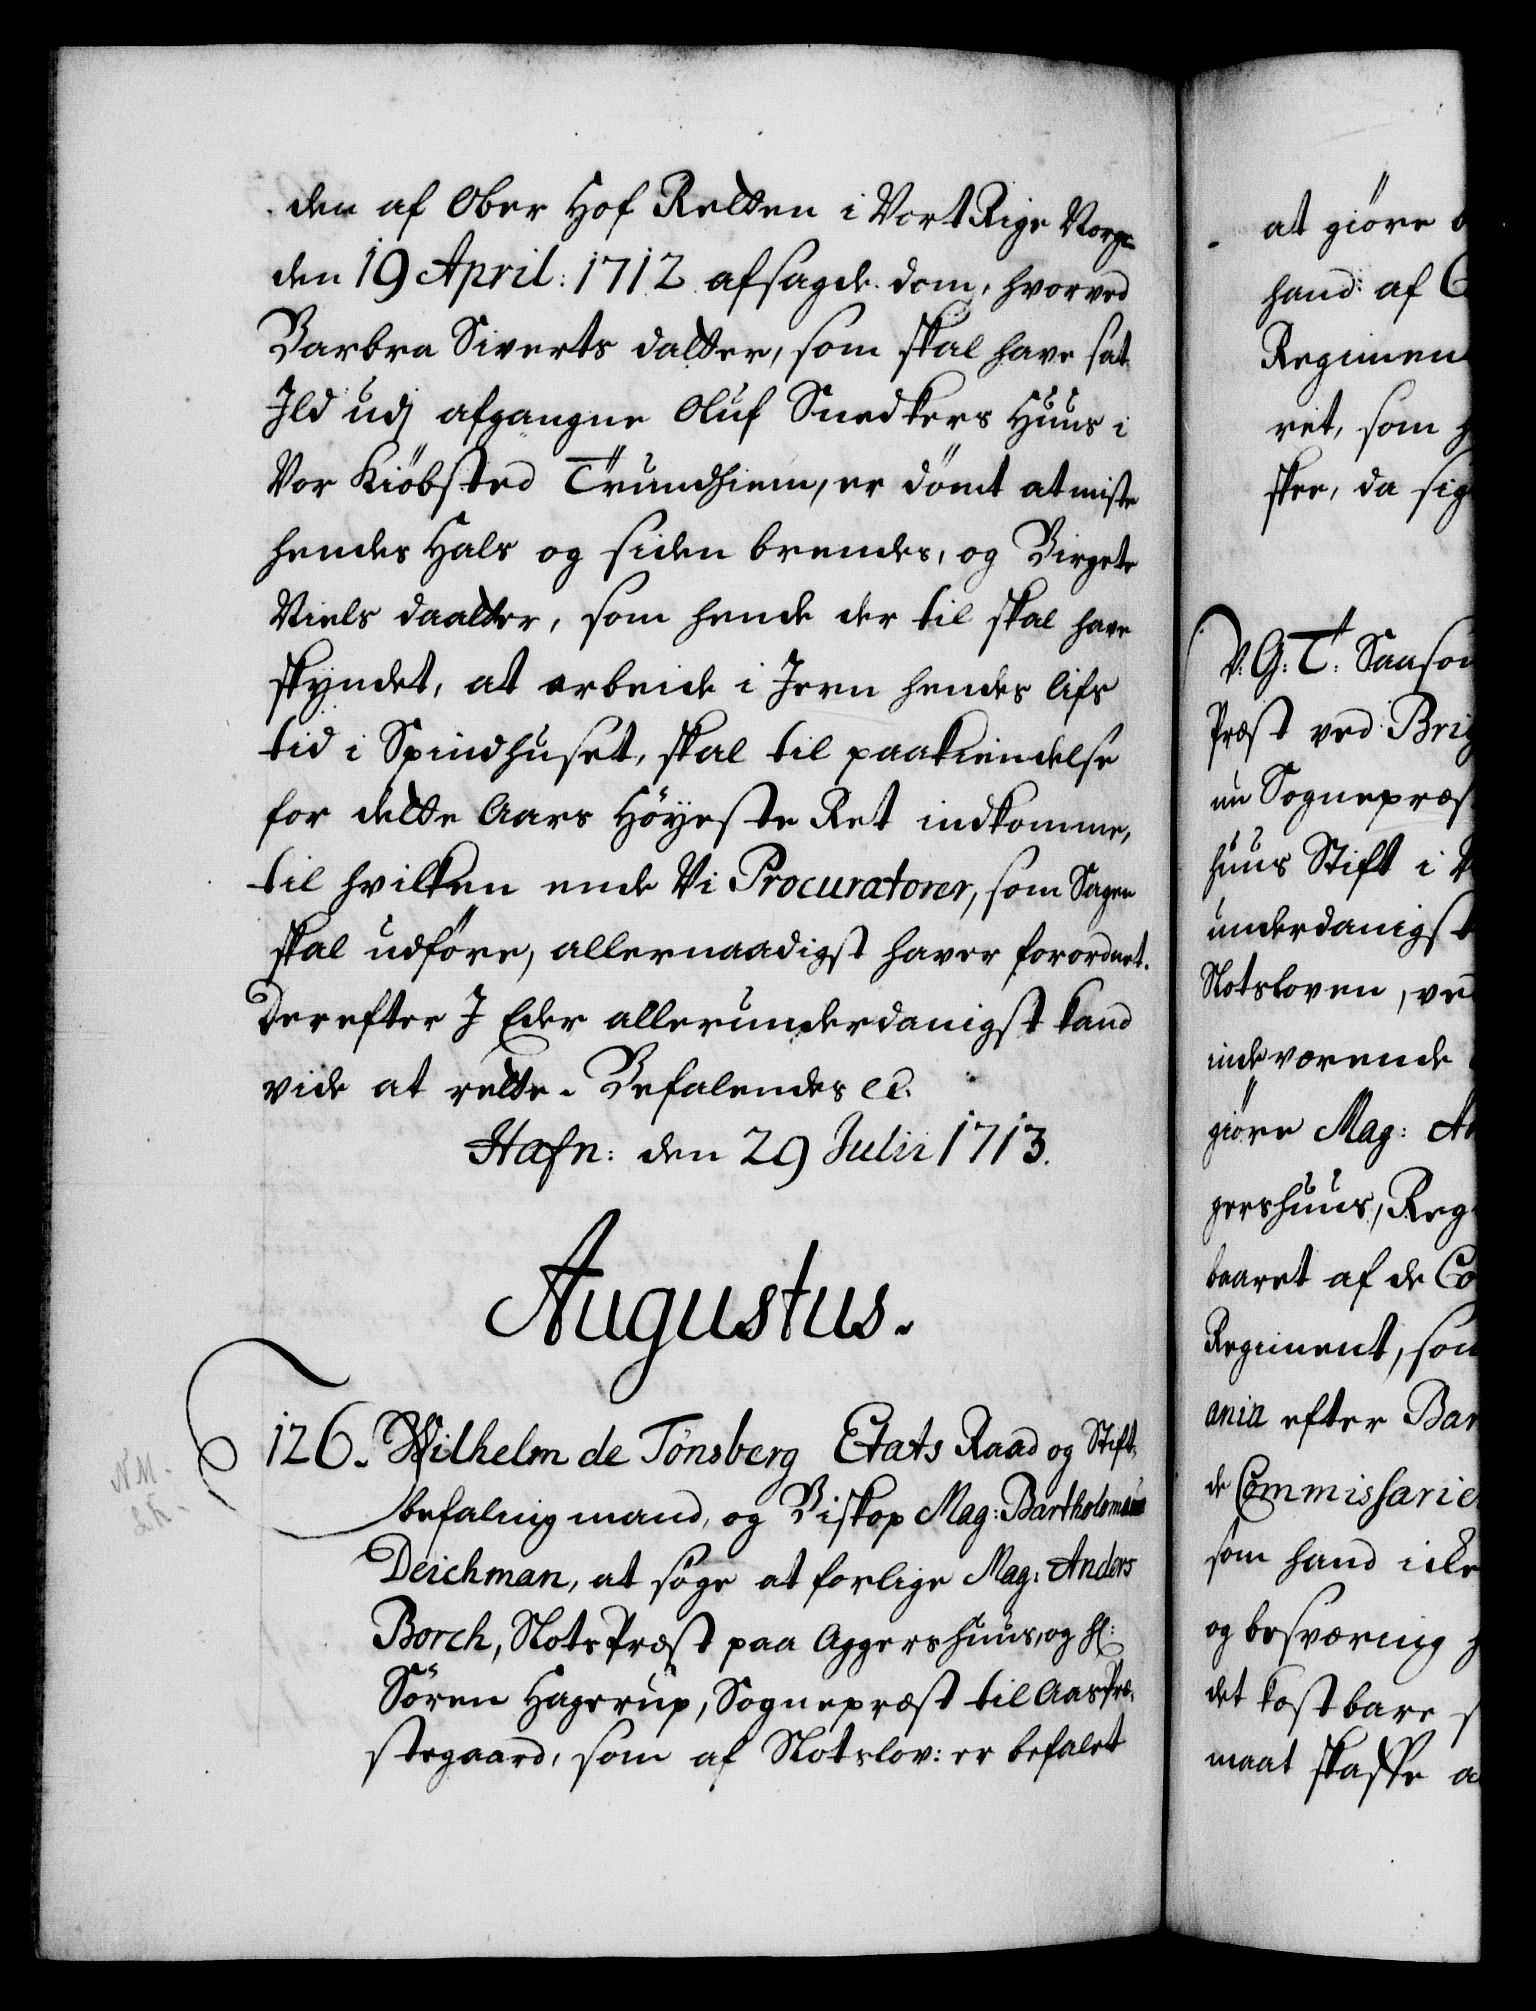 den af Ober Hof Retten i Vort Rige Norge
den 19 April: 1712 afsagde dom, hvorved
Barbra Siverts datter, som skal have sat
Ild udj afgangne Oluf Snedkers Huus i
Vor Kiöbsted Trundhiem, er dömt at miste
hendes Hals og siden brendes, og Birgete
Niels daatter, som hende der til skal have
skyndet, at arbeide i Jern hendes lifs
tid i Spindhuset, skal til paakiendelse
for dette Aars Höyeste Ret indkomme,
til hvilken ende Vi Procuratorer, som Sagen
skal udföre, allernaadigst haver forordnet.
Derefter I Eder allerunderdanigst kand
vide at rette. Befalendes etc.
Hafn: den 29 Julii 1713.
Augustus.
126. Wilhelm de Tönsberg Etats Raad og Stift
befalingmand, og Biskop Mag: Bartholomæus
Deichman, at söge at forlige Mag: Anders
Borch, Slots Præst paa Aggershuus, og Hl:
Sören Hagerup, Sognepræst til Aas Præ-
stegaard, som af Slotslov: er befalet
N.M.
at giöre
hand: af
Regimen
ret, som
skee, da sig
V: G: T: Saasom
Præst ved Brig
nu Sognepræs
huus Stift i
underdanigst
Slotsloven, ved
indeværende
giöre Mag: An
gershuus, Reg
baaret af de Co
Regiment, som
ania efter Bar
de Commissarie
som hand icke
og besværing
det kostbare
maat skaffe